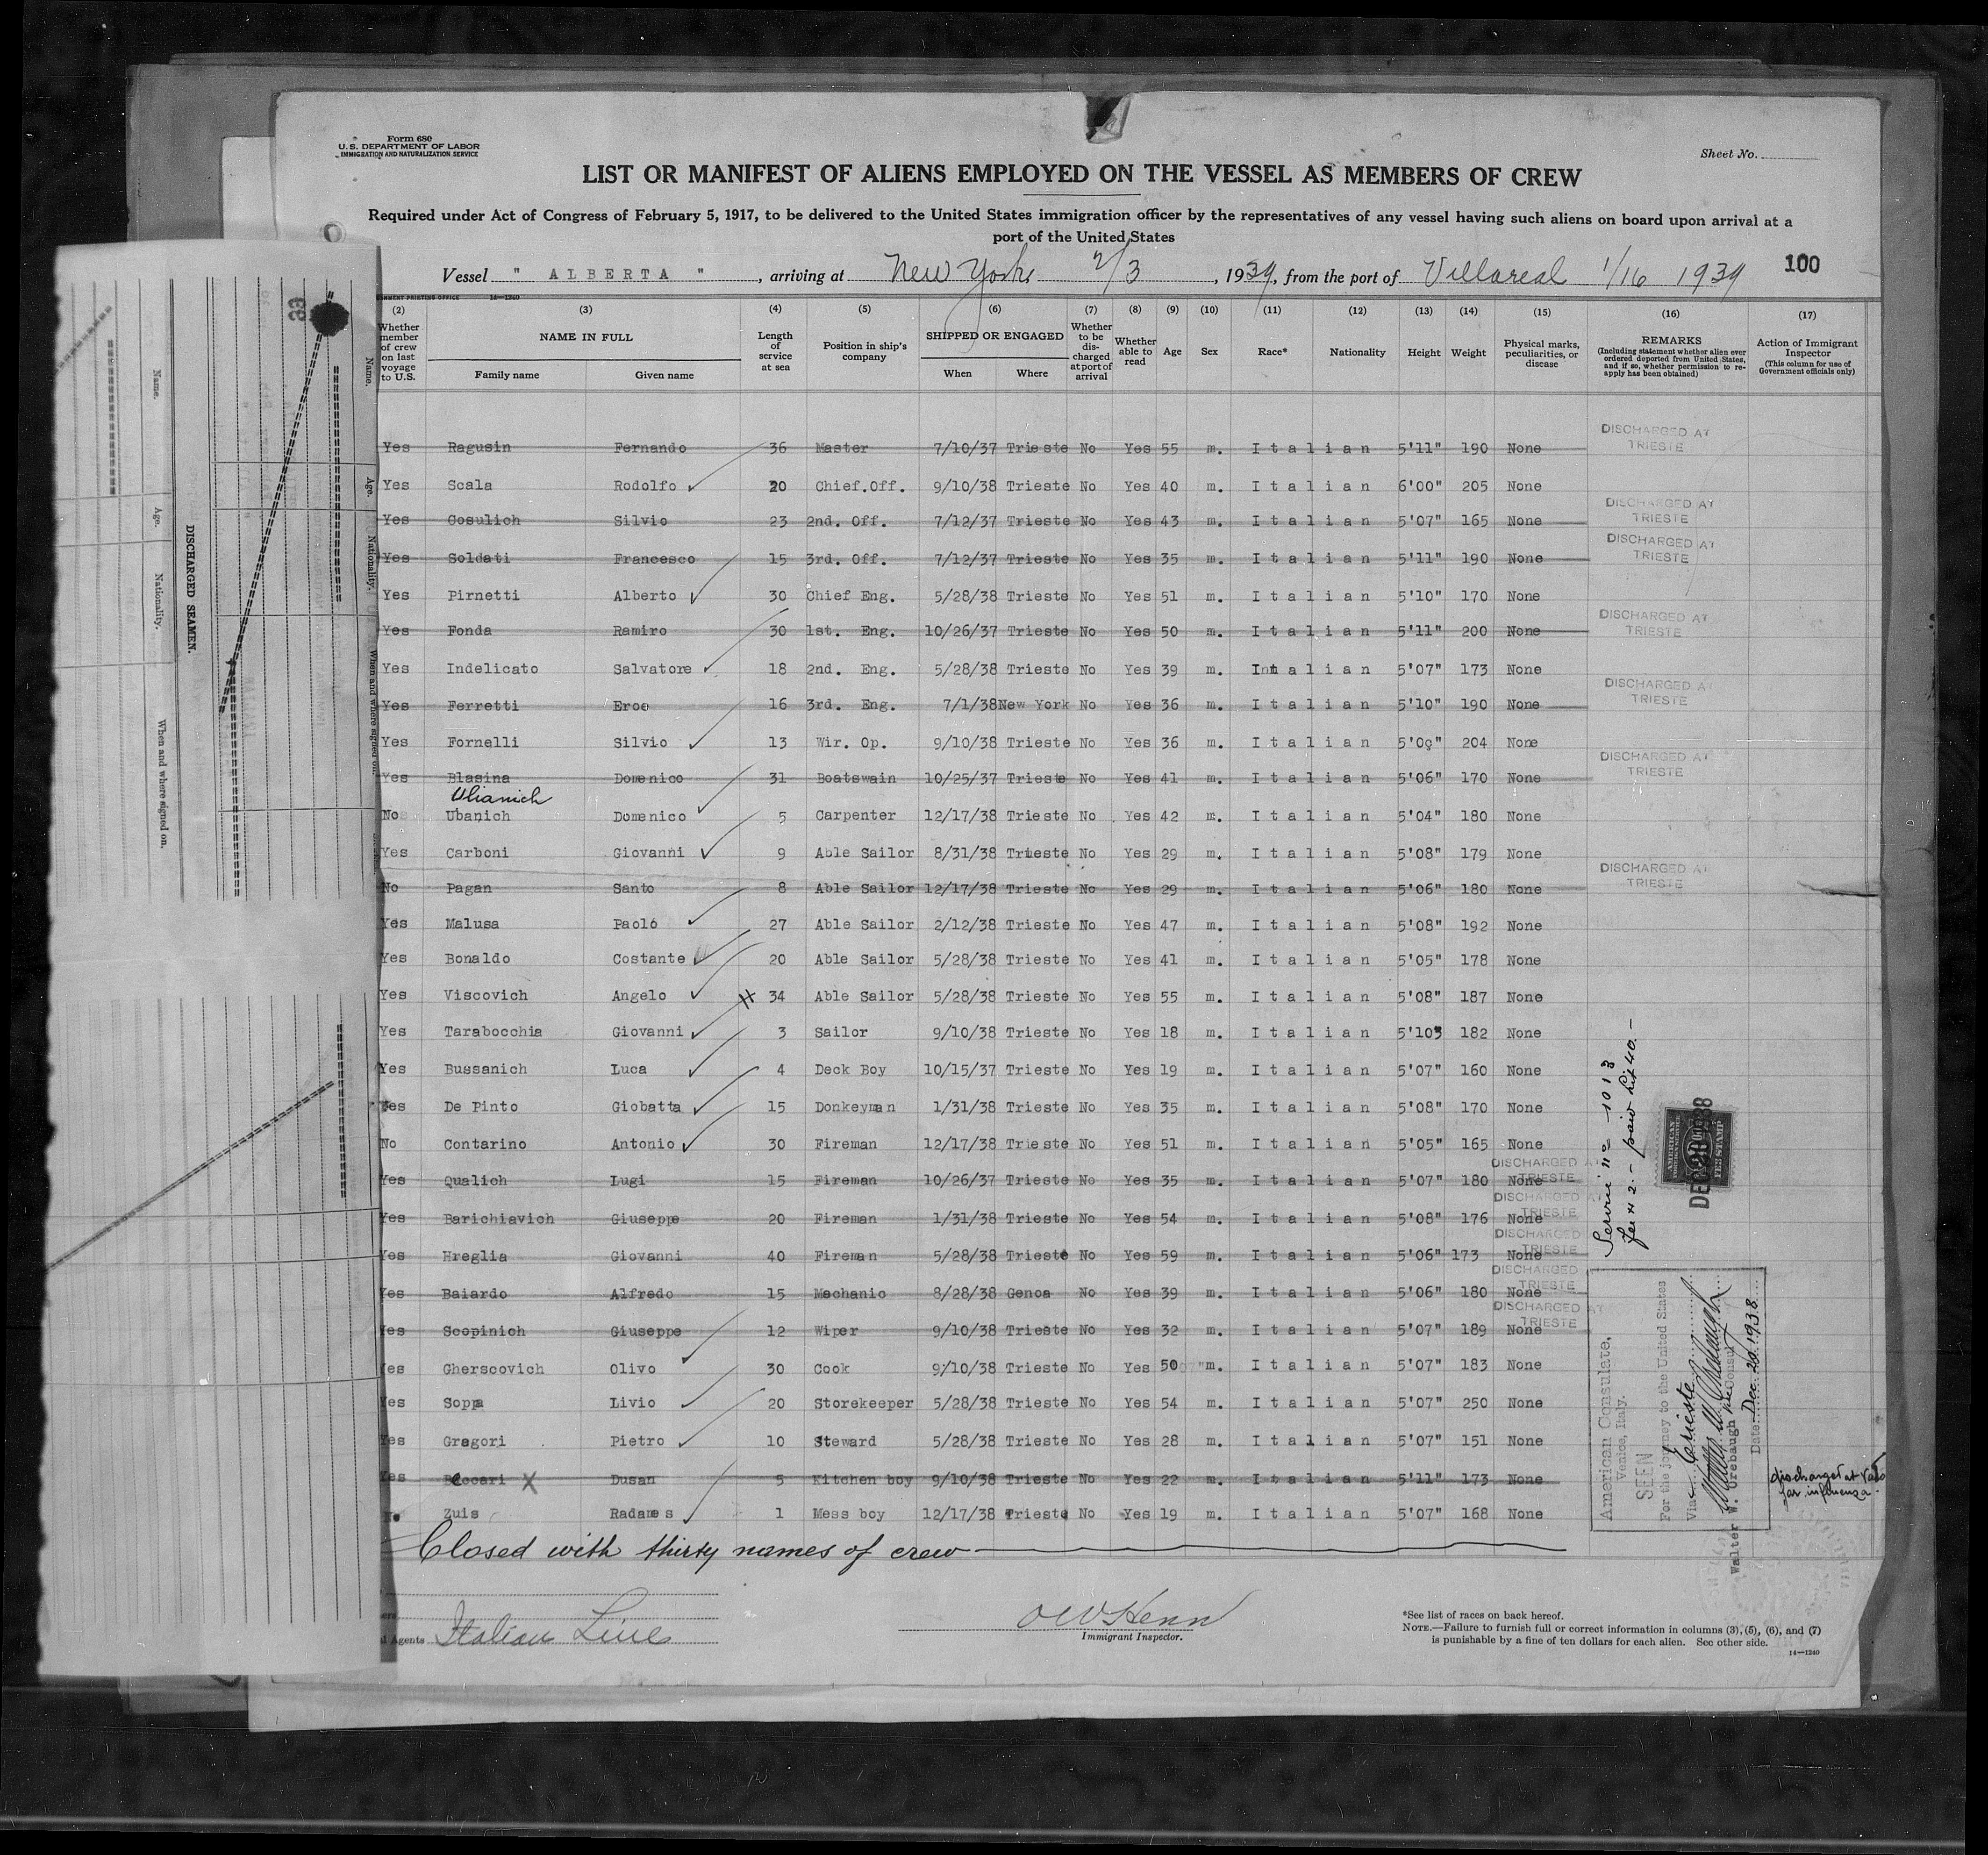 Form 680
U.S. DEPARTMENT OF LABOR
IMMIGRATION AND NATURALIZATION SERVICE
Sheet No.
LIST OR MANIFEST OF ALIENS EMPLOYED ON THE VESSEL AS MEMBERS OF CREW
Required under Act of Congress of February 5, 1917, to be delivered to the United States immigration officer by the representatives of any vessel having such aliens on board upon arrival at a
port of the United States
Vessel " ALBERTA ", arriving at New York 2/3, 1939, from the port of Villareal 1/16 1939 100
(2) (3) (4) (5) (6) (7) (8) (9) (10) (11) (12) (13) (14) (15) (16) (17)
Whether member of crew on last voyage to U.S. NAME IN FULL Family name Given name Length of service at sea Position in ship's company SHIPPED OR ENGAGED When Where Whether to be discharged at port of arrival Whether able to read Age Sex Race* Nationality Height Weight Physical marks, peculiarities, or disease REMARKS (Including statement whether alien ever ordered deported from United States, and if so, whether permission to re-apply has been obtained) Action of Immigrant Inspector (This column for use of Government officials only)
Yes Ragusin Fernando 36 Master 7/10/37 Trieste No Yes 55 m. Italian 5'11" 190 None DISCHARGED AT TRIESTE
Yes Scala Rodolfo 20 Chief.Off. 9/10/38 Trieste No Yes 40 m. Italian 6'00" 205 None
Yes Cosulich Silvio 23 2nd. Off. 7/12/37 Trieste No Yes 43 m. Italian 5'07" 165 None DISCHARGED AT TRIESTE
Yes Soldati Francesco 15 3rd. Off. 7/12/37 Trieste No Yes 35 m. Italian 5'11" 190 None DISCHARGED AT TRIESTE
Yes Pirnetti Alberto 30 Chief Eng. 5/28/38 Trieste No Yes 51 m. Italian 5'10" 170 None
Yes Fonda Ramiro 30 1st. Eng. 10/26/37 Trieste No Yes 50 m. Italian 5'11" 200 None DISCHARGED AT TRIESTE
Yes Indelicato Salvatore 18 2nd. Eng. 5/28/38 Trieste No Yes 39 m. Italian 5'07" 173 None
Yes Ferretti Eroe 16 3rd. Eng. 7/1/38 New York No Yes 36 m. Italian 5'10" 190 None DISCHARGED AT TRIESTE
Yes Fornelli Silvio 13 Wir. Op. 9/10/38 Trieste No Yes 36 m. Italian 5'09" 204 None
Yes Blasina Domenico 31 Boatswain 10/25/37 Trieste No Yes 41 m. Italian 5'06" 170 None DISCHARGED AT TRIESTE
Ulianich
No Ubanich Domenico 5 Carpenter 12/17/38 Trieste No Yes 42 m. Italian 5'04" 180 None
Yes Carboni Giovanni 9 Able Sailor 8/31/38 Trieste No Yes 29 m. Italian 5'08" 179 None
No Pagan Santo 8 Able Sailor 12/17/38 Trieste No Yes 29 m. Italian 5'06" 180 None DISCHARGED AT TRIESTE
Yes Malusa Paolo 27 Able Sailor 2/12/38 Trieste No Yes 47 m. Italian 5'08" 192 None
Yes Bonaldo Costante 20 Able Sailor 5/28/38 Trieste No Yes 41 m. Italian 5'05" 178 None
Yes Viscovich Angelo 34 Able Sailor 5/28/38 Trieste No Yes 55 m. Italian 5'08" 187 None
Yes Tarabocchia Giovanni 3 Sailor 9/10/38 Trieste No Yes 18 m. Italian 5'10" 182 None
Yes Bussanich Luca 4 Deck Boy 10/15/37 Trieste No Yes 19 m. Italian 5'07" 160 None
Yes De Pinto Giobatta 15 Donkeyman 1/31/38 Trieste No Yes 35 m. Italian 5'08" 170 None
No Contarino Antonio 30 Fireman 12/17/38 Trieste No Yes 51 m. Italian 5'05" 165 None
Yes Qualich Lugi 15 Fireman 10/26/37 Trieste No Yes 35 m. Italian 5'07" 180 None DISCHARGED AT TRIESTE
Yes Barichiavich Giuseppe 20 Fireman 1/31/38 Trieste No Yes 54 m. Italian 5'08" 176 None DISCHARGED AT TRIESTE
Yes Hreglia Giovanni 40 Fireman 5/28/38 Trieste No Yes 59 m. Italian 5'06" 173 None DISCHARGED TRIESTE
Yes Baiardo Alfredo 15 Mechanic 8/28/38 Genoa No Yes 39 m. Italian 5'06" 180 None DISCHARGED TRIESTE
Yes Scopinich Giuseppe 12 Wiper 9/10/38 Trieste No Yes 32 m. Italian 5'07" 189 None DISCHARGED AT TRIESTE
Yes Gherscovich Olivo 30 Cook 9/10/38 Trieste No Yes 50 m. Italian 5'07" 183 None
Yes Soppa Livio 20 Storekeeper 5/28/38 Trieste No Yes 54 m. Italian 5'07" 250 None
Yes Gregori Pietro 10 Steward 5/28/38 Trieste No Yes 28 m. Italian 5'07" 151 None
Yes Beccari X Dusan 5 Kitchen boy 9/10/38 Trieste No Yes 22 m. Italian 5'11" 173 None
discharged at
for influenza
Zuis Radames 1 Mess boy 12/17/38 Trieste No Yes 19 m. Italian 5'07" 168 None
Closed with thirty names of crew
Service no 1013
fee $ 2. - paid Lit 40.-
AMERICAN FOREIGN SERVICE FEE STAMP
DEC 28 1938
American Consulate,
Venice, Italy.
SEEN
For the journey to the United States
Via Trieste
Walter W. Orebaugh
Vice Consul
Date Dec. 28, 1938
Agents Italian Line
O W Henn
Immigrant Inspector.
*See list of races on back hereof.
NOTE.—Failure to furnish full or correct information in columns (3), (5), (6), and (7)
is punishable by a fine of ten dollars for each alien. See other side.
14—1240
33
DISCHARGED SEAMEN.
Name.
Age.
Nationality.
When and where signed on.
Name.
Age.
Nationality.
When and where signed on.